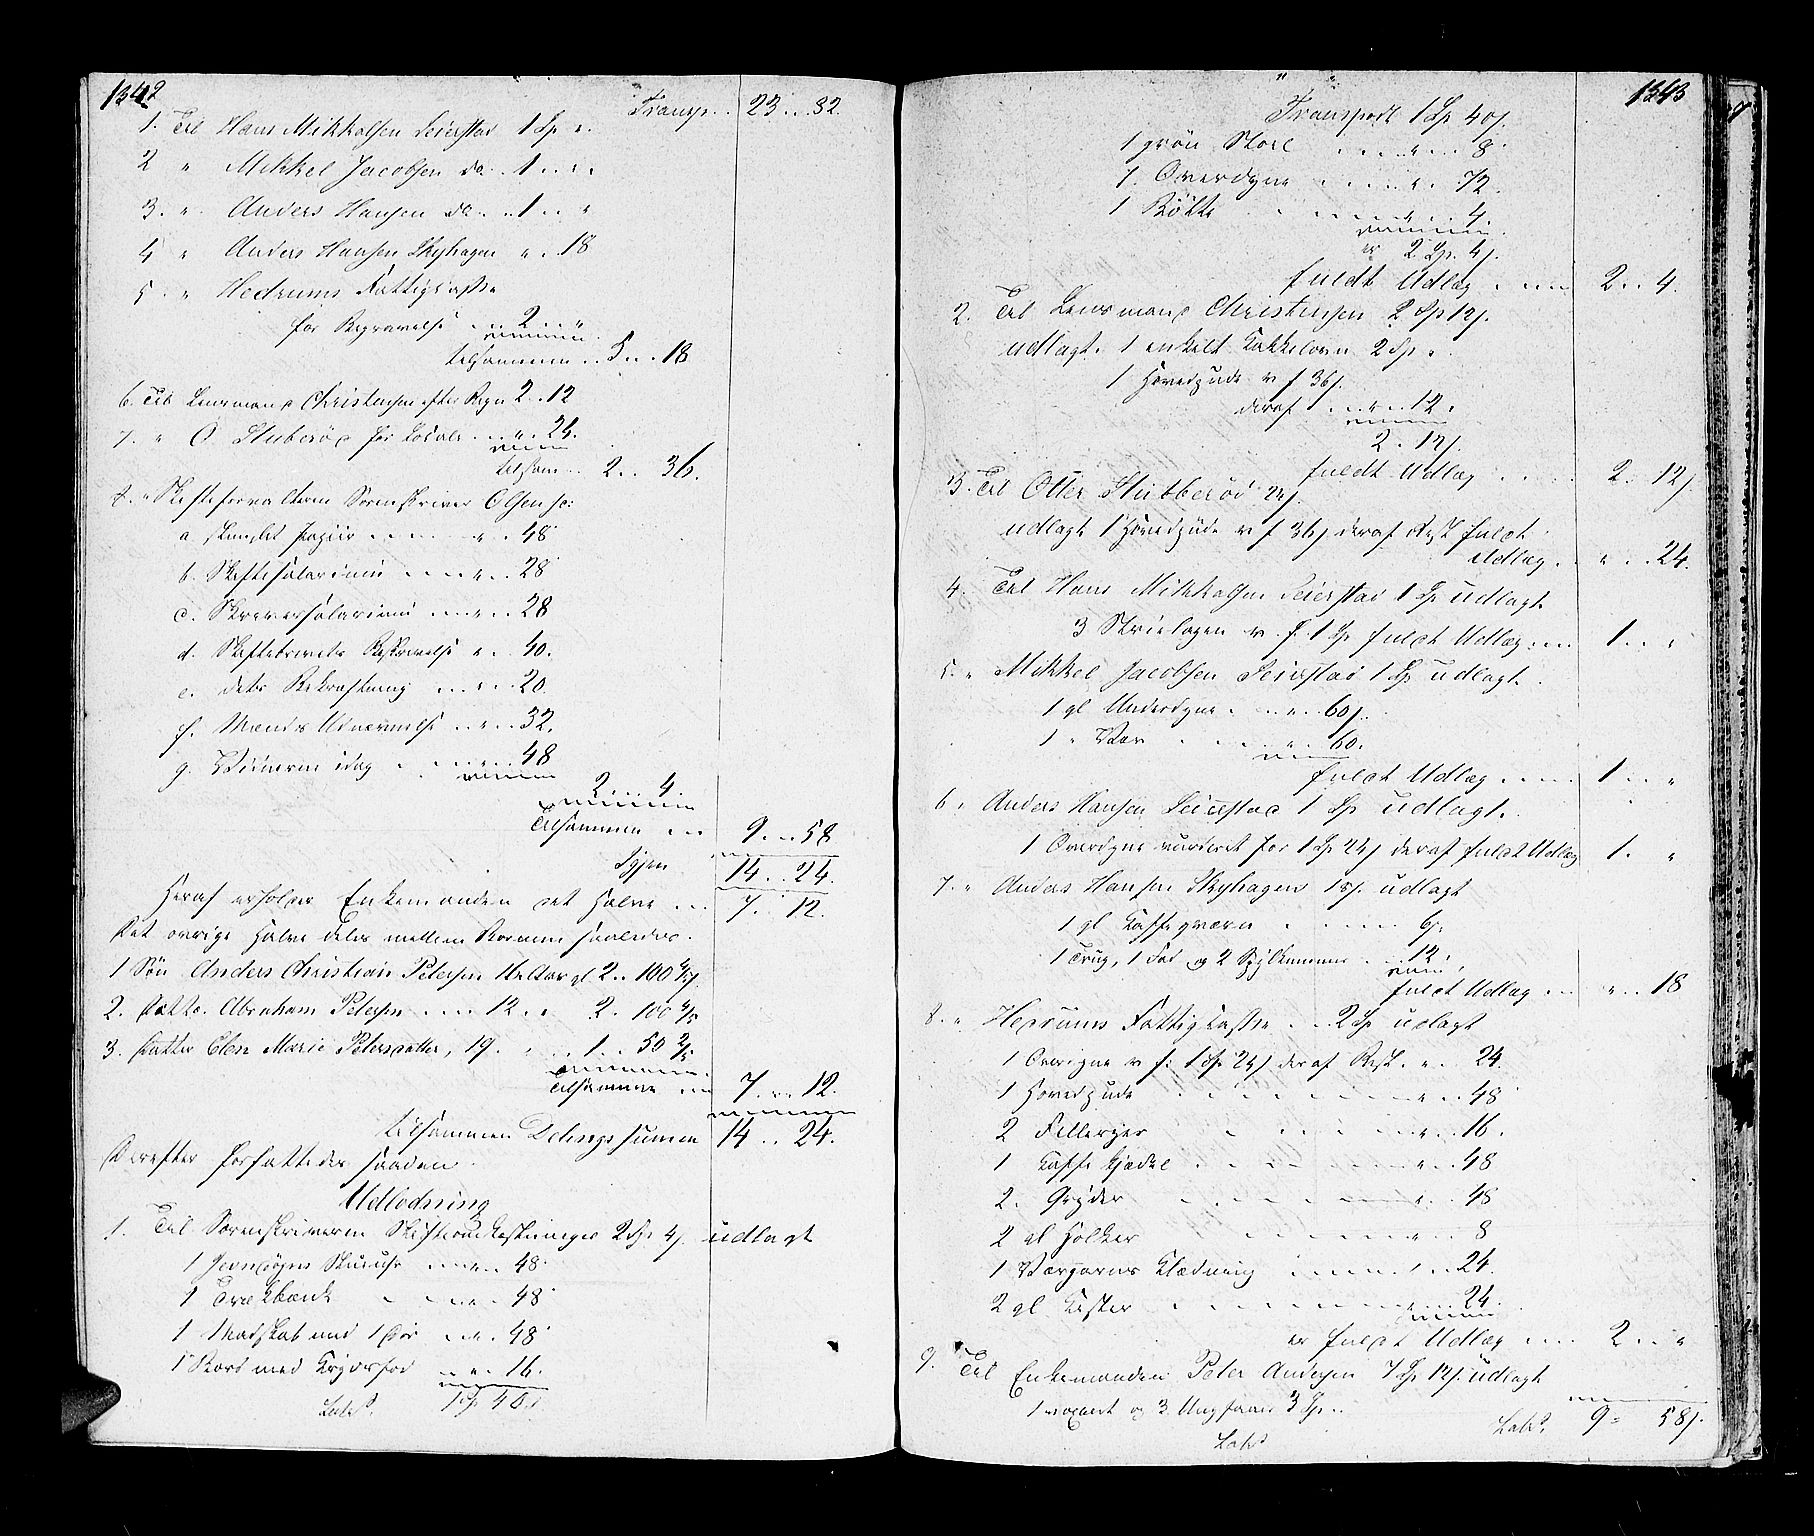 1342
Transp. . 23 . . 32.
1. Til Hans Mikkelsen Seierstad 1 Sp „.
2 „ Mikkel Jacobsen do. . 1 . . „
3. „. Anders Hansen do. . . 1 . . „
4 „ Anders Hansen Skyhagen „ . . 18
5. „ Hedrums Fattigkasse
for Begravelse . . 2 . . „
tilsammen . . 5 . . 18
6. Til Lensmand Christensen efter Regn 2 . . 12
7. „ O. Stuberød for Lokale . . „ . 24.
tilsam . . 2 . . 36.
8. „ Skifteforvalteren Sorenskriver Olsen
a. stemplet Papiir . . . . „ . . 48
b. Skiftesalarium . . . „ . . 28
c. Skriversalarium . . . „ . . 28
d. Skiftebrevets Beskrivelse „ . . 40.
e. dets Bekræftning . . . „ . . 20.
f. Mænds Udnævnelse . . „ . . 32.
g. Vidnerne idag . . . . „ . . 48
2 . . . 4.
Tilsammen . . . 9 . . . 58
Igjen 14 . . 24.
Heraf erholder Enkemanden det halve . . . 7. . 12.
Det øvrige halve deles mellem Børnene saaledes.
1 Søn Anders Christian Petersen 16 Aar gl 2 . . 100 4/5
2. Ditto. Abraham Petersen . . . . 12. „ 2. . 100 4/5
3. Datter Elen Marie Petersdatter, 19. „ . . 1 . . 50 2/5
Tilsammen . . . 7 . . . 12.
tilsammen Delings summa 14 . . 24.
Derefter forfattedes saadan
Udlodning
1. Til Sorenskriverens Skifteomkostninger 2 Sp 4 s. udlagt
1 Skuur . . . . „ . . 48
1 Trækbænk . . . . „ . . 48
1 Madskab med 1 Dør . . . „ . . 48
1 Bord med Krydsfod . . „ . . 16.
Lats. 1 Sp 40 s
1343
Transport 1 Sp 40 s.
1 grøn Stoel . . . . „ . . . 8.
1. Overdyne . . . . . „ . . 72.
1 Bøtte . . . . . . . „ . . 4.
er 2 Sp. 4 s.
fuldt Udlæg . . . . 2. . 4.
2. Til Lensmand Christensen 2 Sp 12 s.
udlagt. 1 enkelt Kakkelovn 2 Sp „.
1 Hovedpude v f 36 s.
deraf . . . „ . . 12.
2. 12 s.
fuldt Udlæg . . . . . 2. . 12 s
3. Til Otter Stuberød 24 s.
udlagt 1 Hovedpude v f 36 s deraf Rest fuldt
Udlæg . . „ . . 24.
4. Til Hans Mikkelsen Seierstad 1 Sp udlagt
3 Strielagen v. f. 1 Sp fuldt Udlæg . . . . 1 . . „
5. „ Mikkel Jacobsen Seierstad 1 Sp udlagt.
1 gl Underdyne . . . „ . . 60 s.
1 „ Vær . . . . . „ . . 60.
fuldt Udlæg . . . . . 1 . . „
6. „ Anders Hansen Seierstad 1 Sp udlagt.
1 Overdyne vurderet for 1 Sp 24 s deraf fuldt Udlæg 1. . „
7. „ Anders Hansen Skyhagen 18 s. udlagt
1 gl Kaffeqværn . . . . . . 6.
1 Trug, 1 Fad og 2 . . 12.
fuldt Udlæg . . . „ . . 18
8. „ Hedrums Fattigkasse . . 2 Sp udlagt
1 Overdyne v f: 1 Sp 24 s deraf Rest . „ . . 24.
1 Hovedpude . . . . . . „ . . 48
2 Felleryer . . . . . „ . . 16.
1 Kaffe Kjedel . . . . . . „ . . 48
2. Gryder . . . . . „ . . 48
2 gl Holker . . . . „ . . 8
1 Klædning . . . . . . . 24.
2 gl Kister . . . . . . „ . . 24.
er fuldt Udlæg . . . . 2 . . „
9. Til Enkemanden Peter Andersen 7 Sp 12 s. udlagt
1 og 3 3 Sp . .
Lats
Lats. 9 „ 58 s.